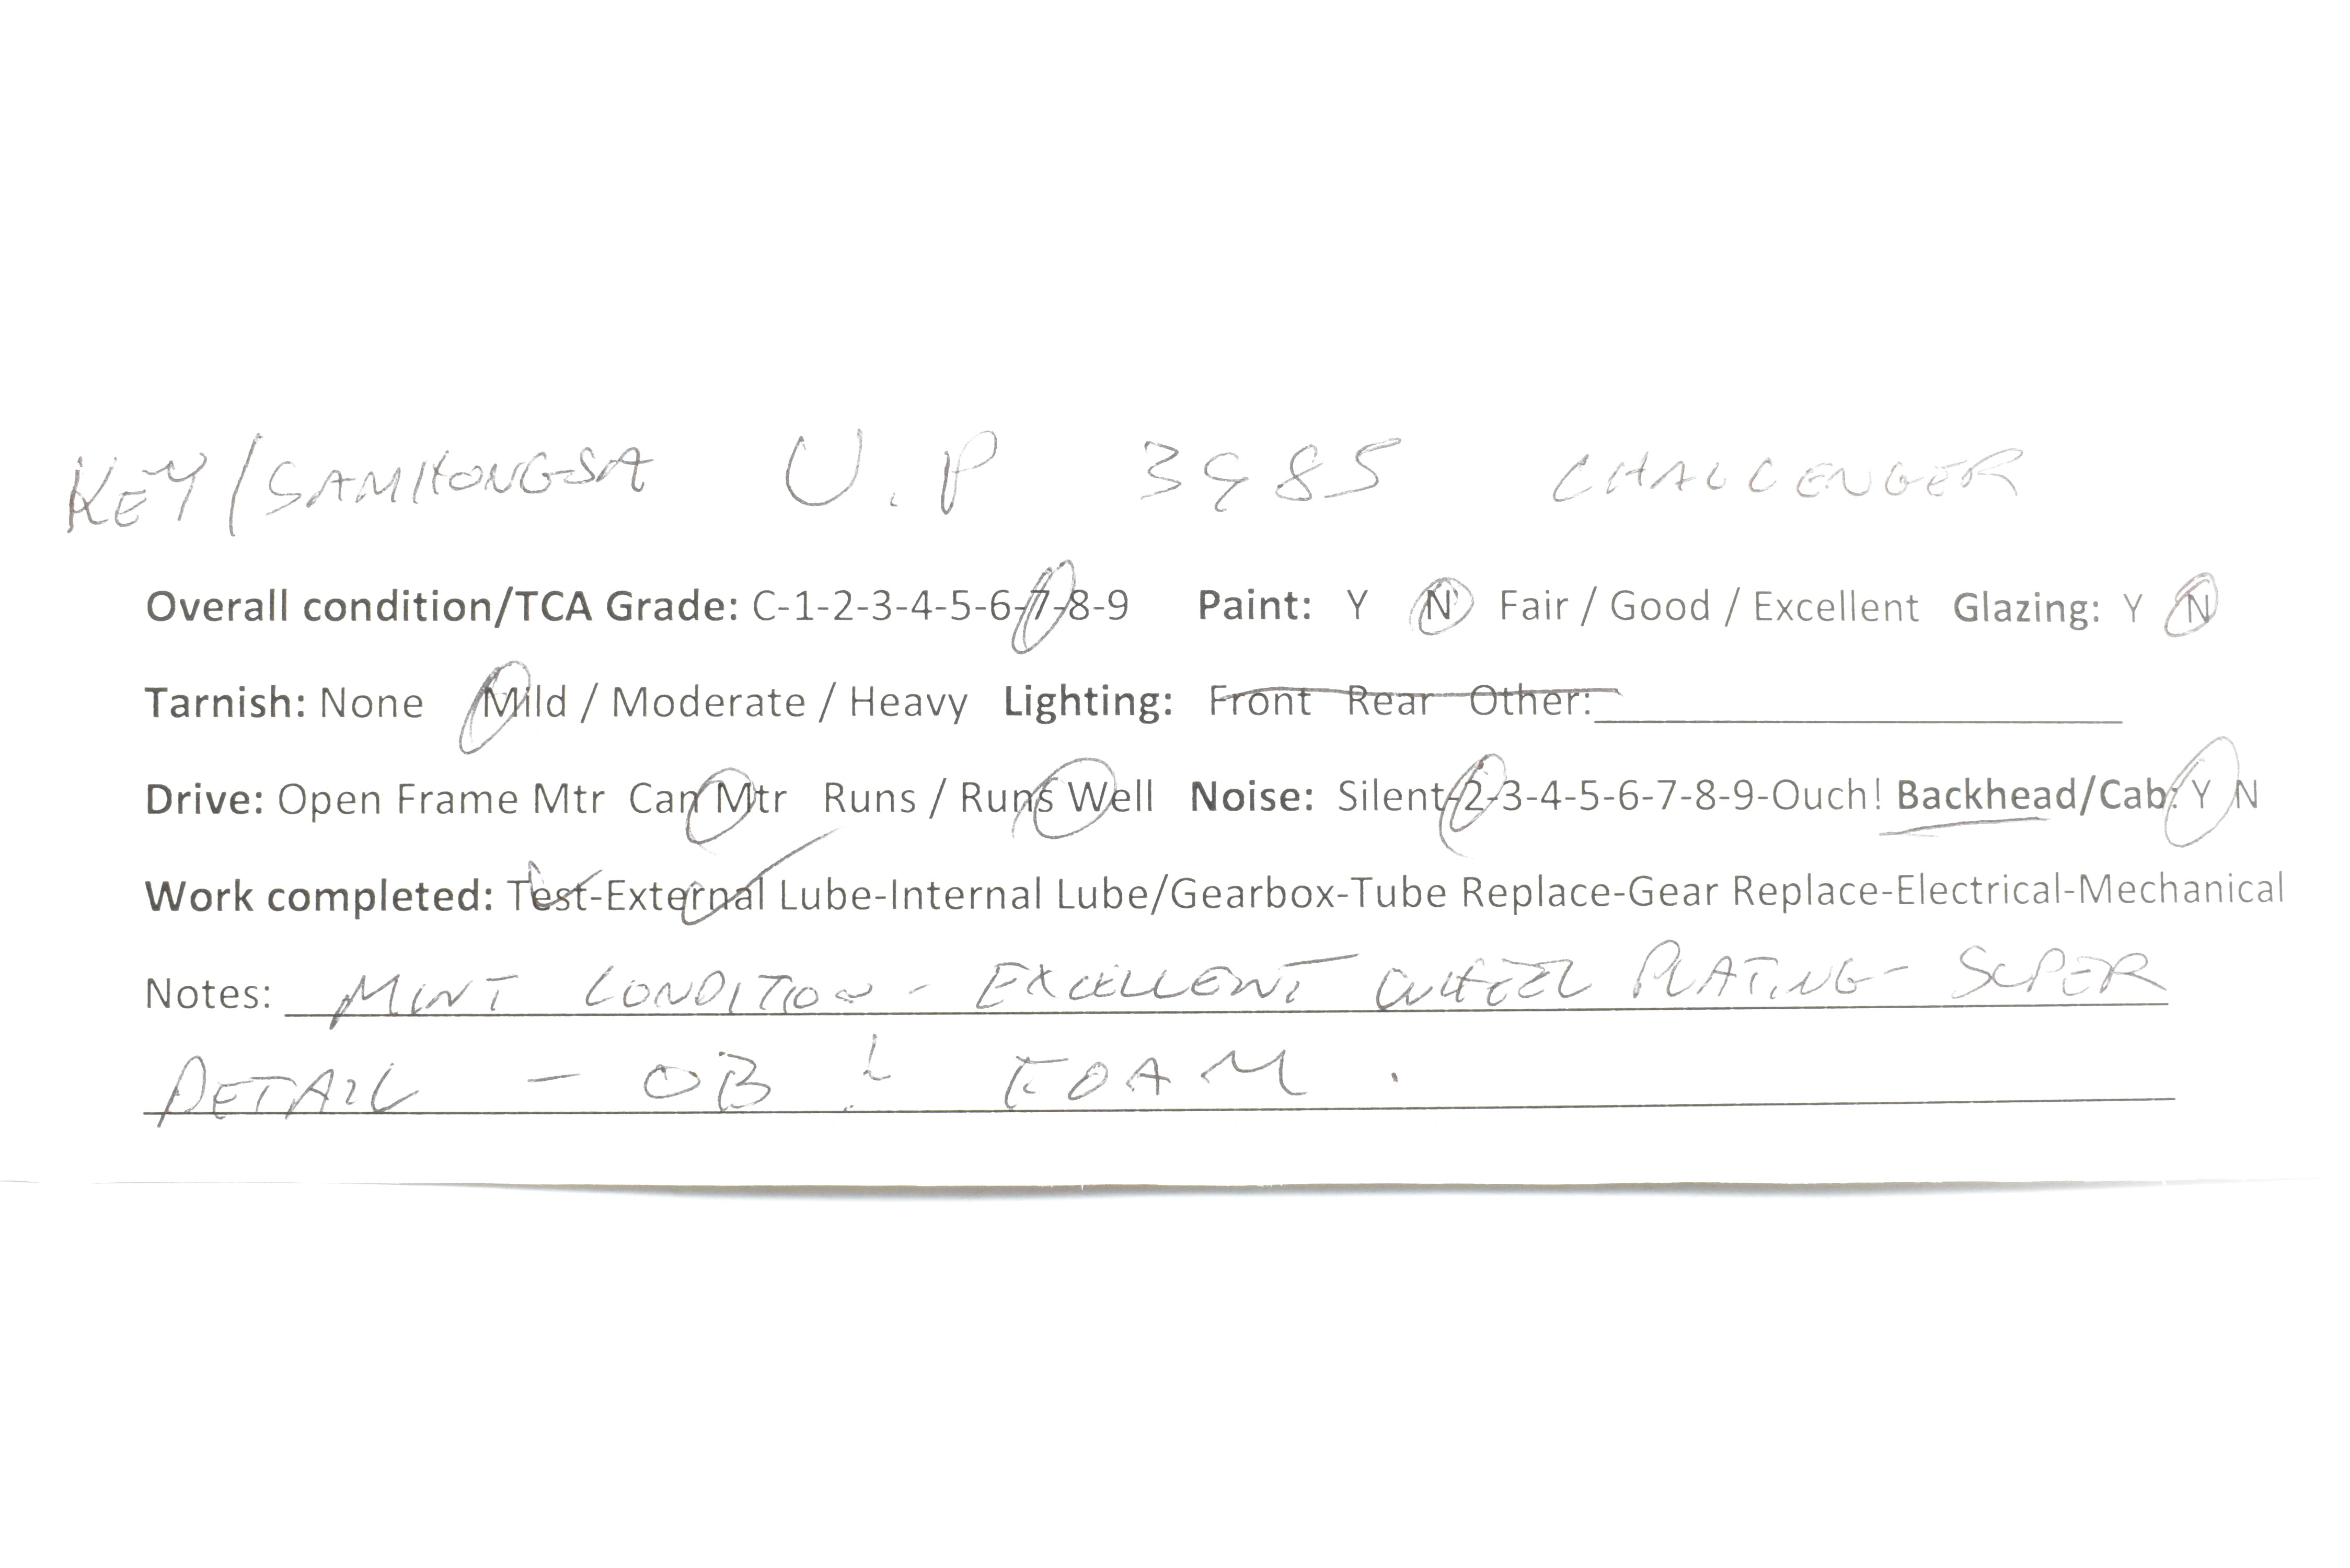 KEY/SAMHONGSA U.P 3985 CHALLENGER
Overall condition/TCA Grade: C-1-2-3-4-5-6-7-8-9 Paint: Y N Fair / Good / Excellent Glazing: Y N
Tarnish: None Mild / Moderate / Heavy Lighting: Front Rear Other:
Drive: Open Frame Mtr Can Mtr Runs / Runs Well Noise: Silent-2-3-4-5-6-7-8-9-Ouch! Backhead/Cab: Y N
Work completed: Test-External Lube-Internal Lube/Gearbox-Tube Replace-Gear Replace-Electrical-Mechanical
Notes: MINT CONDITION - EXCELLENT WHEEL PLATING - SUPER
DETAIL - OB & FOAM.